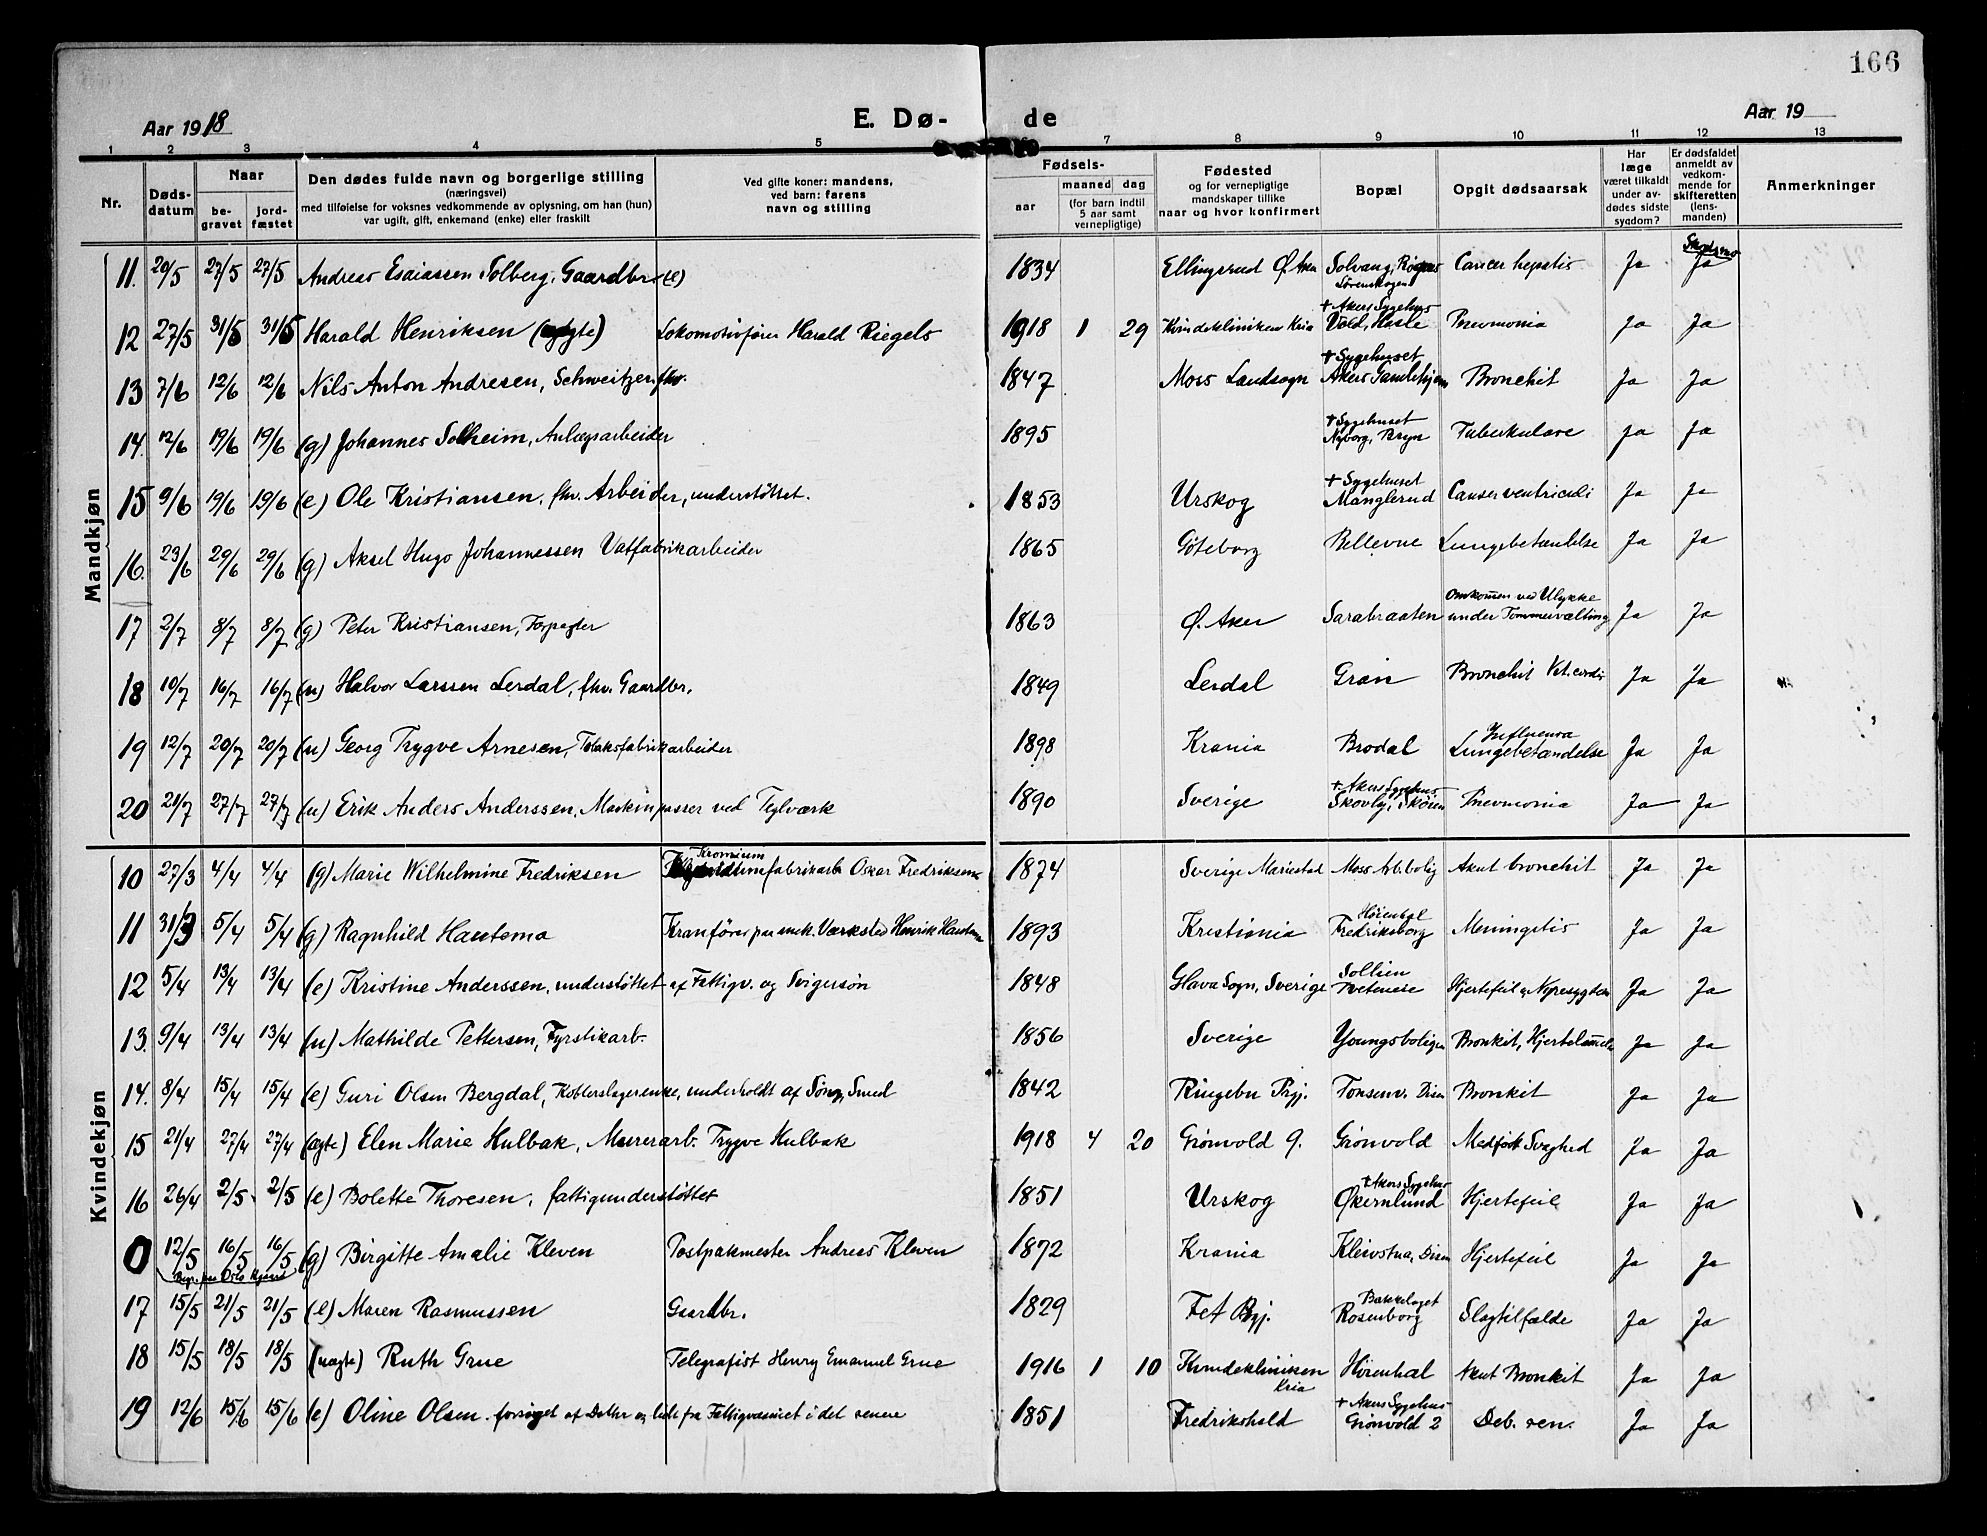 166
Aar 1918 E. Dø- de Aar 19
1 2 3 4 5 7 8 9 10 11 12 13
Nr. Døds-datum Naar be-gravet jord-fæstet Den dødes fulde navn og borgerlige stilling (næringsvei) med tilføielse for voksnes vedkommende av oplysning, om han (hun) var ugift, gift, enkemand (enke) eller fraskilt Ved gifte koner: mandens, ved barn: farens navn og stilling Fødsels- aar maaned dag (for barn indtil 5 aar samt vernepligtige) Fødested og for vernepligtige mandskaper tillike naar og hvor konfirmert Bopæl Opgit dødsaarsak Har læge været tilkaldt under av-dødes sidste sygdom? Er dødsfaldet anmeldt av vedkom-mende for skifteretten (lens-manden) Anmerkninger
Mandkjøn
11. 20/5 27/5 27/5 Andreas Esaiassen Solberg, Gaardbr. (e) 1834 Ellingsrud Ø. Aker Solvang, Lørenskogen Cancer hepatis Ja Ja
12 27/5 31/5 31/5 Harald Henriksen Lokomotivfører Harald Riegels 1918 1 29 Kvindekliniken Kria + Akers Sygehus Vold, Hasle Pnevmonia Ja Ja
13 7/6 12/6 12/6 Nils Anton Andresen, Schweitzer, fhv. 1847 Moss Landsogn + Sygehuset Akers Gamlehjem Bronchit Ja Ja
14. 12/6 19/6 19/6 (g) Johannes Solheim, Anlægsarbeider 1895 + Sygehuset Nyborg, Bryn Tuberkulose Ja Ja
15 9/6 19/6 19/6 (e) Ole Kristiansen, fhv. Arbeider, understøttet. 1853 Urskog + Sygehuset Manglerud Canser ventriculi Ja Ja
16. 23/6 29/6 29/6 (g) Aksel Hugo Johannessen Vatfabrikarbeider 1865 Gøteborg Bellevue Lungebetændelse Ja Ja
17 2/7 8/7 8/7 (g) Peter Kristiansen, Forpagter 1863 Ø. Aker Sarabraaten Omkommen ved Ulykke under Tømmervæltning Ja Ja
18 10/7 16/7 16/7 (u) Halvor Larssen Lerdal, fhv. Gaardbr. 1849 Lerdal Gran Bronchit Vit. cordis Ja Ja
19 12/7 20/7 20/7 (u) Georg Trygve Arnesen, Tobaksfabrikarbeider 1898 Krania Brodal Influensa Lungebetændelse Ja Ja
20 21/7 27/7 27/7 (u) Erik Anders Anderssen, Maskinpasser ved Teglværk 1890 Sverige + Akers Sygehus Skovly, Skøien Pnevmonia Ja Ja
Kvindekjøn
10 27/3 4/4 4/4 (g) Marie Wilhelmine Fredriksen Kromium fabrikarb. Oskar Fredriksen 1874 Sverige Mariestad Moss Arb.bolig Akut bronchit Ja Ja
11 31/3 5/4 5/4 (g) Ragnhild Hautema Kranfører paa mek. Værksted Henrik Hautema 1893 Kristiania Høienhal Fredriksborg Meningitis Ja Ja
12 5/4 13/4 13/4 (e) Kristine Anderssen, understøttet af Fattigv. og Svigersøn 1848 Glava Sogn, Sverige Sollien Tveteneie Hjertefeil og Nyresygdom Ja Ja
13. 9/4 13/4 13/4 (u) Mathilde Pettersen, Fyrstikarb. 1856 Sverige Youngsboligen Bronkit, Hjertelammelse Ja Ja
14. 8/4 15/4 15/4 (e) Guri Olsen Bergdal, Koblerslagerenke, underholdt af Søn, Smed 1842 Ringebu Prgj. Tonsenv. Disen Bronkit Ja Ja
15 21/4 27/4 27/4 (ægte) Elen Marie Hulbak, Murerarb. Trygve Hulbak 1918 4 20 Grønvold g. Grønvold Medfødt Svaghed Ja Ja
16 26/4 2/5 2/5 (e) Bolette Thoresen, fattigunderstøttet 1851 Urskog + Akers Sygehus Økernlund Hjertefeil Ja Ja
0 12/5 16/5 16/5 (g) Birgitte Amalie Kleven Postpakmester Andreas Kleven 1872 Krania Kleivstua, Disen Hjertefeil Ja Ja
Begr. paa Oslo Kjgaard
17 15/5 21/5 21/5 (e) Maren Rasmussen Gaardbr. 1829 Fet Prgj. Bækkelaget Rosenborg Slagtilfælde Ja Ja
18 15/5 18/5 18/5 (uægte) Ruth Grue Telegrafist Henry Emanuel Grue 1916 1 10 Kvindekliniken Kria Høienhal Akut Bronkit Ja Ja
19 12/6 15/6 15/6 (e) Oline Olsen, forsørget af Datter og lidt fra Fattigvæsenet i det senere 1851 Fredrikshald + Akers Sygehus Grønvold 2 Deb. sen. Ja Ja